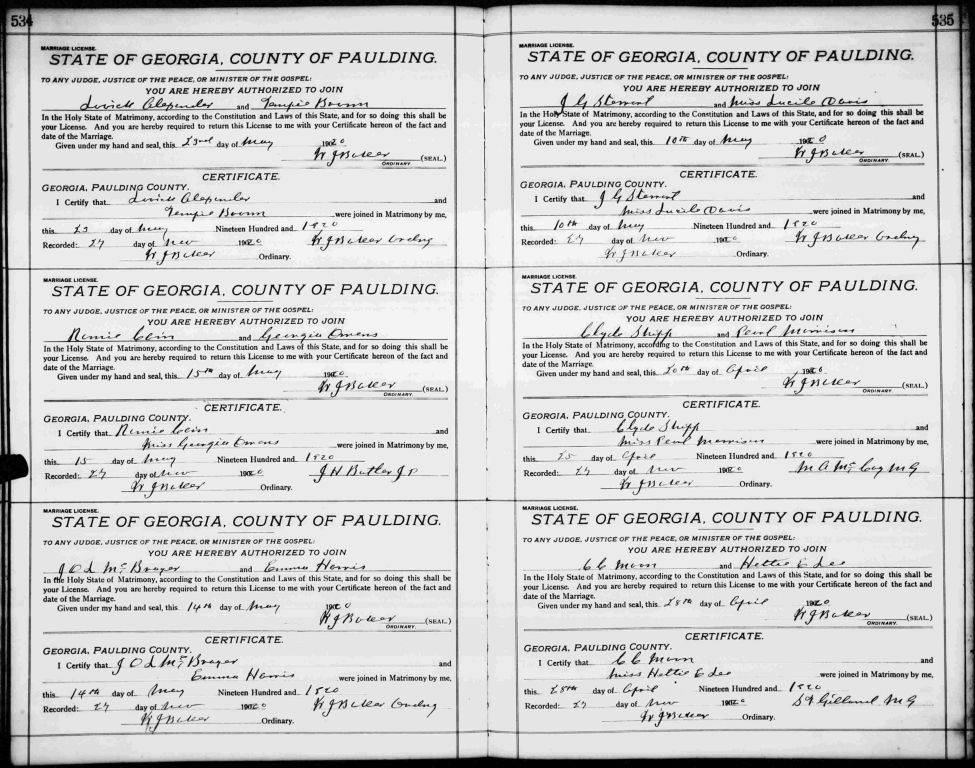 534
MARRIAGE LICENSE.
STATE OF GEORGIA, COUNTY OF PAULDING.
TO ANY JUDGE, JUSTICE OF THE PEACE, OR MINISTER OF THE GOSPEL:
YOU ARE HEREBY AUTHORIZED TO JOIN
and Tempie
In the Holy State of Matrimony, according to the Constitution and Laws of this State, and for so doing this shall be
your License. And you are hereby required to return this License to me with your Certificate hereon of the fact and
date of the Marriage.
Given under my hand and seal, this 23rd day of May 1920
W J Baker (SEAL.)
ORDINARY.
CERTIFICATE.
GEORGIA, PAULDING COUNTY.
I Certify that and
Tempie were joined in Matrimony by me,
this 23 day of May Nineteen Hundred and 1920
Recorded: 27 day of Nov 1920 W J Baker Ordny
W J Baker Ordinary.
MARRIAGE LICENSE.
STATE OF GEORGIA, COUNTY OF PAULDING.
TO ANY JUDGE, JUSTICE OF THE PEACE, OR MINISTER OF THE GOSPEL:
YOU ARE HEREBY AUTHORIZED TO JOIN
and Georgia Owens
In the Holy State of Matrimony, according to the Constitution and Laws of this State, and for so doing this shall be
your License. And you are hereby required to return this License to me with your Certificate hereon of the fact and
date of the Marriage.
Given under my hand and seal, this 15th day of May 1920
W J Baker (SEAL.)
ORDINARY.
CERTIFICATE.
GEORGIA, PAULDING COUNTY.
I Certify that and
Miss Georgia Owens were joined in Matrimony by me,
this 15 day of May Nineteen Hundred and 1920
Recorded: 27 day of Nov 1920 J H Butler J P
W J Baker Ordinary.
MARRIAGE LICENSE.
STATE OF GEORGIA, COUNTY OF PAULDING.
TO ANY JUDGE, JUSTICE OF THE PEACE, OR MINISTER OF THE GOSPEL:
YOU ARE HEREBY AUTHORIZED TO JOIN
J O L McBrayer and Emma Harris
In the Holy State of Matrimony, according to the Constitution and Laws of this State, and for so doing this shall be
your License. And you are hereby required to return this License to me with your Certificate hereon of the fact and
date of the Marriage.
Given under my hand and seal, this 14th day of May 1920
W J Baker (SEAL.)
ORDINARY.
CERTIFICATE.
GEORGIA, PAULDING COUNTY.
I Certify that J O L McBrayer and
Emma Harris were joined in Matrimony by me,
this 14th day of May Nineteen Hundred and 1920
Recorded: 27 day of Nov 1920 W J Baker Ordny
W J Baker Ordinary.
535
MARRIAGE LICENSE.
STATE OF GEORGIA, COUNTY OF PAULDING.
TO ANY JUDGE, JUSTICE OF THE PEACE, OR MINISTER OF THE GOSPEL:
YOU ARE HEREBY AUTHORIZED TO JOIN
J G Stewart and Miss Lucile Davis
In the Holy State of Matrimony, according to the Constitution and Laws of this State, and for so doing this shall be
your License. And you are hereby required to return this License to me with your Certificate hereon of the fact and
date of the Marriage.
Given under my hand and seal, this 10th day of May 1920
W J Baker (SEAL.)
ORDINARY.
CERTIFICATE.
GEORGIA, PAULDING COUNTY.
I Certify that J G Stewart and
Miss Lucile Davis were joined in Matrimony by me,
this 10th day of May Nineteen Hundred and 1920
Recorded: 27 day of Nov 1920 W J Baker Ordny
W J Baker Ordinary.
MARRIAGE LICENSE.
STATE OF GEORGIA, COUNTY OF PAULDING.
TO ANY JUDGE, JUSTICE OF THE PEACE, OR MINISTER OF THE GOSPEL:
YOU ARE HEREBY AUTHORIZED TO JOIN
Clyde Shipp and Pearl Morrison
In the Holy State of Matrimony, according to the Constitution and Laws of this State, and for so doing this shall be
your License. And you are hereby required to return this License to me with your Certificate hereon of the fact and
date of the Marriage.
Given under my hand and seal, this 20th day of April 1920
W J Baker (SEAL.)
ORDINARY.
CERTIFICATE.
GEORGIA, PAULDING COUNTY.
I Certify that Clyde Shipp and
Miss Pearl Morrison were joined in Matrimony by me,
this 25 day of April Nineteen Hundred and 1920
Recorded: 27 day of Nov 1920 M A McCoy M G
W J Baker Ordinary.
MARRIAGE LICENSE.
STATE OF GEORGIA, COUNTY OF PAULDING.
TO ANY JUDGE, JUSTICE OF THE PEACE, OR MINISTER OF THE GOSPEL:
YOU ARE HEREBY AUTHORIZED TO JOIN
C C Moon and Hettie E Lee
In the Holy State of Matrimony, according to the Constitution and Laws of this State, and for so doing this shall be
your License. And you are hereby required to return this License to me with your Certificate hereon of the fact and
date of the Marriage.
Given under my hand and seal, this 28th day of April 1920
W J Baker (SEAL.)
ORDINARY.
CERTIFICATE.
GEORGIA, PAULDING COUNTY.
I Certify that C C Moon and
Miss Hettie E Lee were joined in Matrimony by me,
this 28th day of April Nineteen Hundred and 1920
Recorded: 27 day of Nov 1920 M G
W J Baker Ordinary.